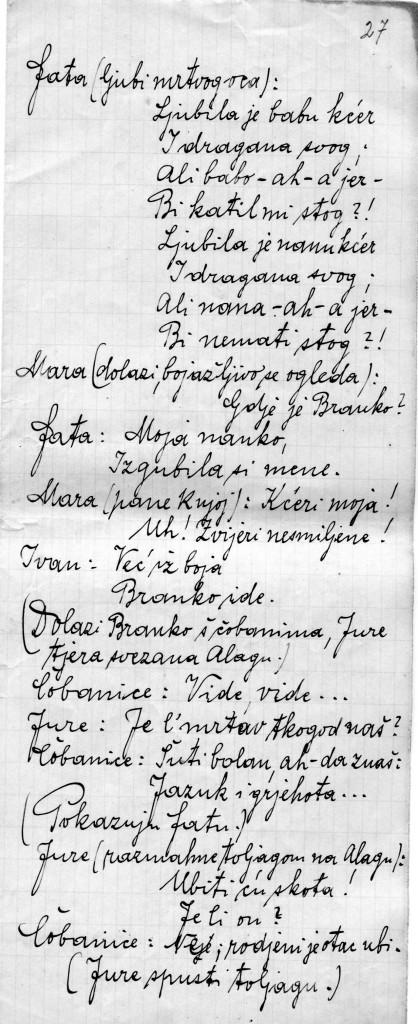 27
Fata (ljubi mrtvog oca):
Ljubila je babu kćer
I dragana svog;
Ali babo - ah - a jer -
Bi katil mi stog?!
Ljubila je nanu kćer
I dragana svog;
Ali nana - ah - a jer -
Bi nemati stog?!
Mara (dolazi, bojažljivo se ogleda):
Gdje je Branko?
Fata: Moja nanko,
Izgubila si mene.
Mara (pane k njoj): Kćeri moja!
Uh! Zvijeri nesmiljene!
Ivan: Već iz boja
Branko ide.
(Dolazi Branko š čobanima, Jure
tjera svezana Alagu.)
Čobanice: Vide, vide...
Jure: Je l' mrtav tkogod naš?
Čobanice: Šuti bolan, ah - da znaš:
Jazuk i grjehota...
(Pokazuju Fatu.)
Jure (razmahne toljagom na Alagu):
Ubiti ću skota!
Je li on?
Čobanice: Nije; rodjeni je otac ubi.
(Jure spusti toljagu.)